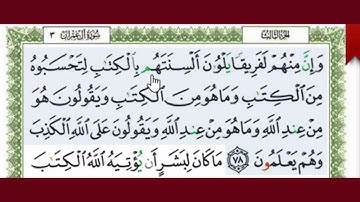 الجزء الثالث سورة آل عمران ٣
وَإِنَّ مِنْهُمْ لَفَرِيقًا يَلْوُۥنَ أَلْسِنَتَهُم بِٱلْكِتَٰبِ لِتَحْسَبُوهُ
مِنَ ٱلْكِتَٰبِ وَمَا هُوَ مِنَ ٱلْكِتَٰبِ وَيَقُولُونَ هُوَ
مِنْ عِندِ ٱللَّهِ وَمَا هُوَ مِنْ عِندِ ٱللَّهِ وَيَقُولُونَ عَلَى ٱللَّهِ ٱلْكَذِبَ
وَهُمْ يَعْلَمُونَ ٧٨ مَا كَانَ لِبَشَرٍ أَن يُؤْتِيَهُ ٱللَّهُ ٱلْكِتَٰبَ